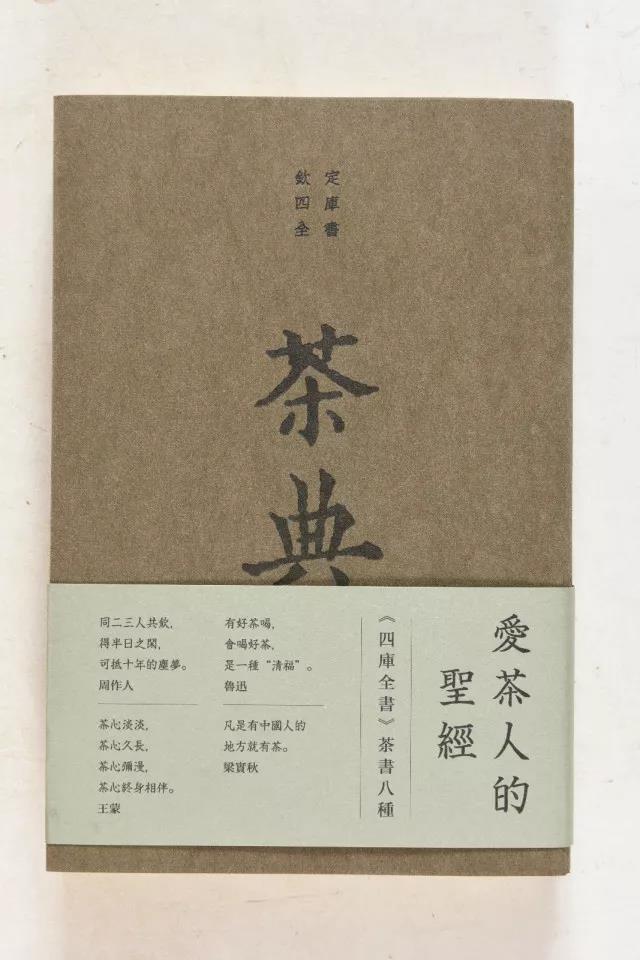 欽定
四庫
全書
茶典
同二三人共飲，
得半日之閑，
可抵十年的塵夢。
周作人
有好茶喝，
會喝好茶，
是一種“清福”。
魯迅
茶心淡淡，
茶心久長，
茶心彌漫，
茶心終身相伴。
王蒙
凡是有中國人的
地方就有茶。
梁實秋
《四庫全書》茶書八種
愛茶人的
聖經